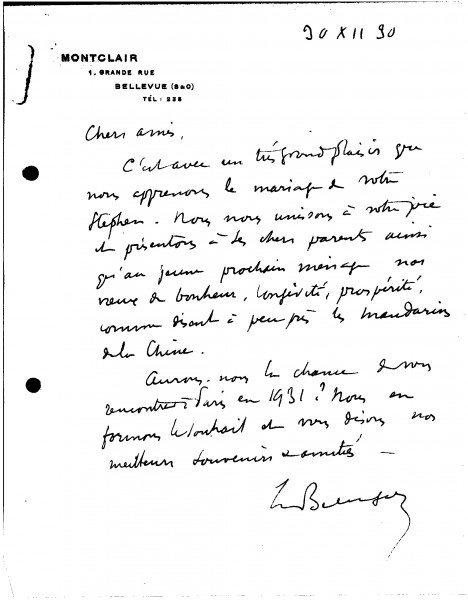 30 XII 30
MONTCLAIR
1, GRANDE RUE
BELLEVUE (S&O)
TÉL: 235
Chers amis,
C'est avec un très grand plaisir que
nous apprenons le mariage de votre
Stephen. Nous nous unissons à votre joie
et présentons à ses chers parents ainsi
qu'au jeune prochain ménage nos
vœux de bonheur, longévité, prospérité,
comme disent à peu près les Mandarins
de la Chine.
Aurons-nous la chance de vous
rencontrer à Paris en 1931? Nous en
formons le souhait et vous disons nos
meilleurs souvenirs & amitiés —